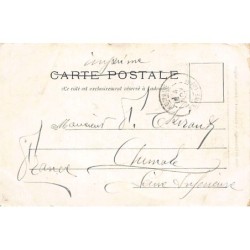 imprimé
CARTE POSTALE
Ce côté est exclusivement réservé à l'adresse
Monsieur
Aumale
Seine Inférieure
France